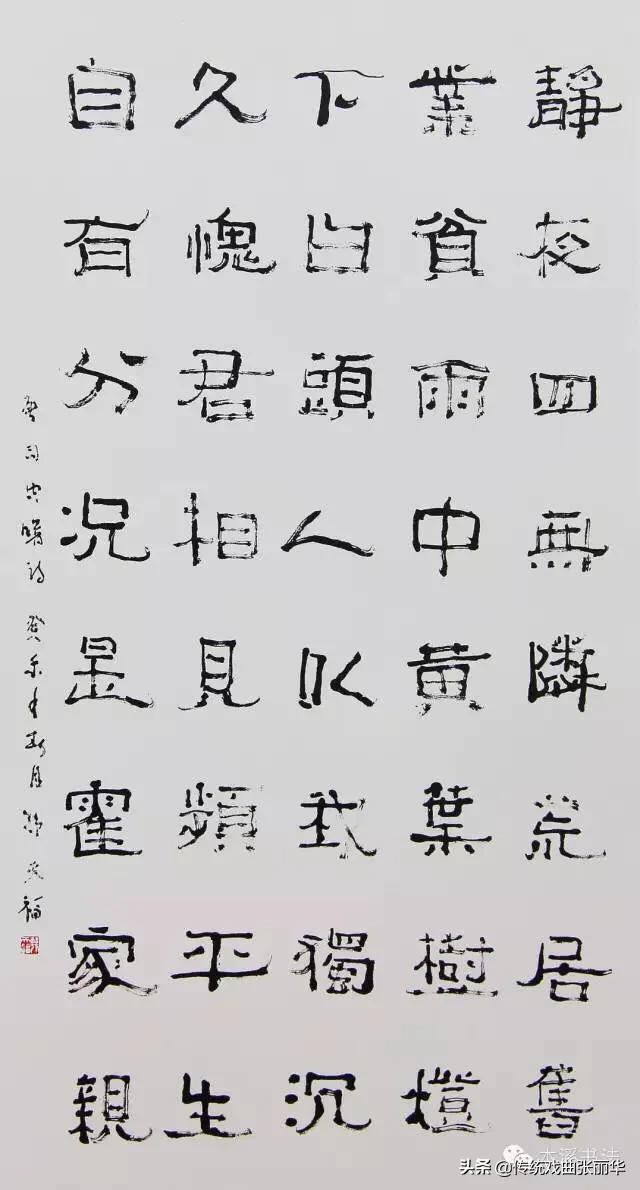 靜夜四無隣荒居舊
業貧雨中黃葉樹燈
下白頭人以我獨沉
久愧君相見頻平生
自有分況是霍家親
司空曙詩 癸未年 月 福
本溪书法
头条 @传统戏曲张丽华